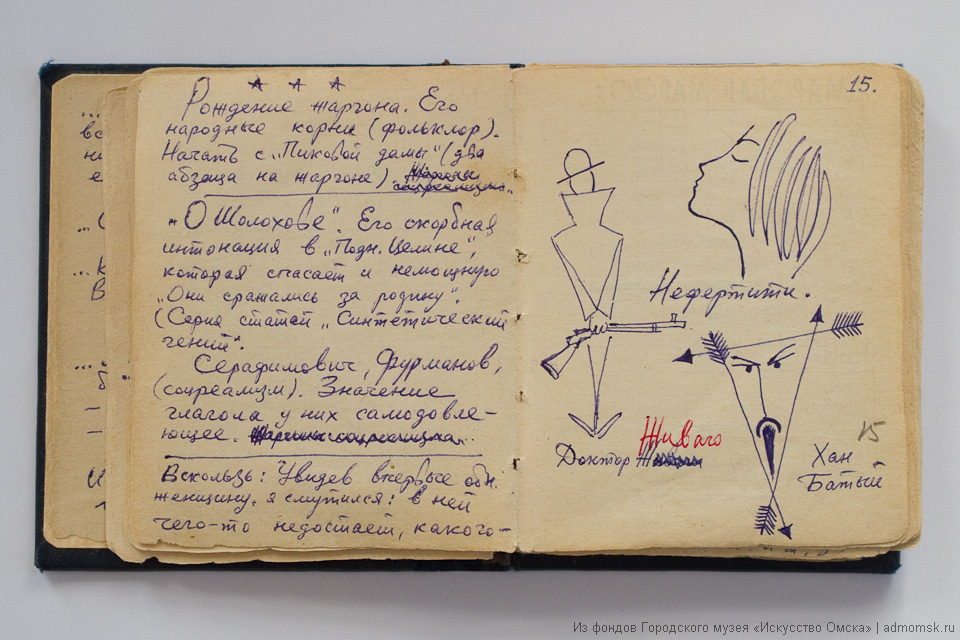 Рождение жаргона. Его
народные корни (фольклор).
Начать с „Пиковой дамы" (два
абзаца на жаргоне)
„О Шолохове". Его скорбная
интонация в „Подн. Целине",
которая спасает и немощную
„Они сражались за родину".
(Серия статей „Синтетический
гений".
Серафимович, Фурманов,
(соцреализм). Значение
глагола у них самодовле-
ющее.
Вскользь: Увидев впервые обн.
женщину, я смутился: в ней
чего-то недостает, какого-
15.
Нефертити.
Доктор Живаго
15
Хан
Батый
Из фондов Городского музея «Искусство Омска» | admomsk.ru